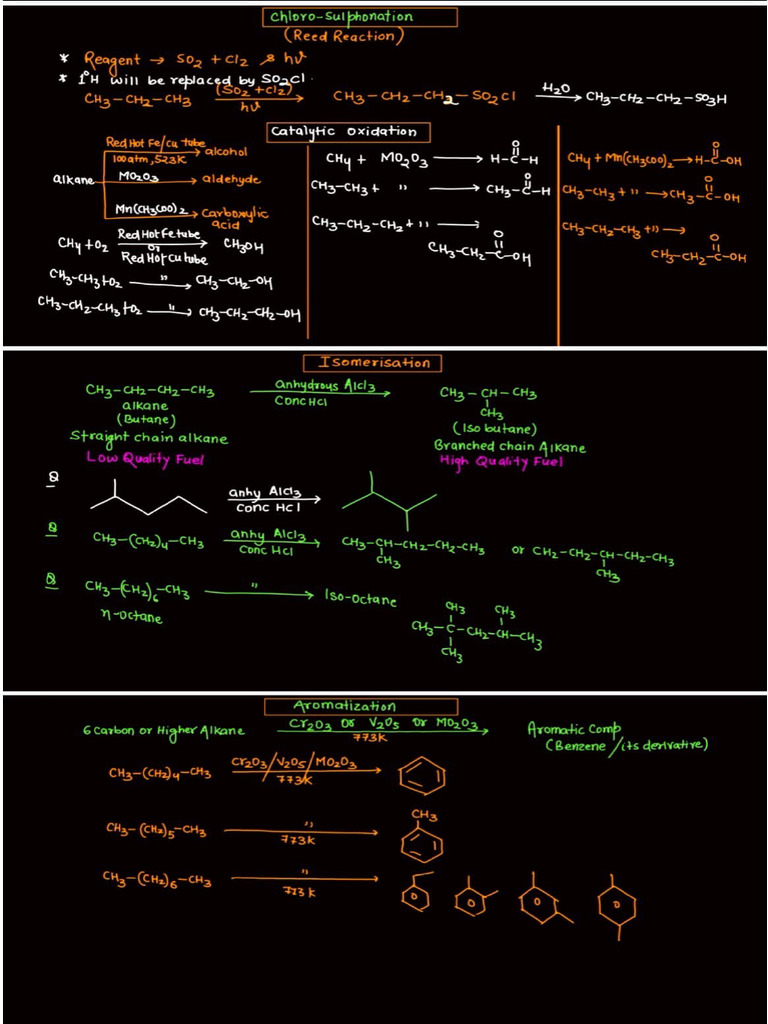 Chloro-Sulphonation
(Reed Reaction)
* Reagent → SO2 + Cl2 & hν
* 1°H will be replaced by SO2Cl.
CH3-CH2-CH3 (SO2+Cl2) hν → CH3-CH2-CH2-SO2Cl H2O → CH3-CH2-CH2-SO3H
Catalytic Oxidation
alkane
Red Hot Fe/Cu tube
100atm, 523K → alcohol
MO2O3 → aldehyde
Mn(CH3COO)2 → Carboxylic
acid
CH4 + O2 Red Hot Fe tube → CH3OH
or
Red Hot Cu tube
CH3-CH3+O2 " → CH3-CH2-OH
CH3-CH2-CH3+O2 " → CH3-CH2-CH2-OH
CH4 + MO2O3 → H-C-H
O
CH3-CH3 + " → CH3-C-H
O
CH3-CH2-CH2 + " →
O
CH3-CH2-C-OH
CH4 + Mn(CH3COO)2 → H-C-OH
O
CH3-CH3 + " → CH3-C-OH
O
CH3-CH2-CH3 + " →
O
CH3-CH2-C-OH
Isomerisation
CH3-CH2-CH2-CH3 anhydrous AlCl3 → CH3-CH-CH3
Conc HCl
CH3
alkane
(Butane)
(Iso butane)
Straight chain alkane
Branched chain Alkane
Low Quality Fuel
High Quality Fuel
Q
anhy AlCl3
conc HCl
Q
CH3-(CH2)4-CH3 anhy AlCl3 → CH3-CH-CH2-CH2-CH3 or CH2-CH2-CH-CH2-CH3
Conc HCl
CH3
CH3
Q
CH3-(CH2)6-CH3 " → Iso-octane
n-octane
CH3 CH3
CH3-C-CH2-CH-CH3
CH3
Aromatization
6 Carbon or Higher Alkane Cr2O3 or V2O5 or MO2O3 → Aromatic Comp
773K
(Benzene/its derivative)
CH3-(CH2)4-CH3 Cr2O3/V2O5/MO2O3 →
773K
CH3
CH3-(CH2)5-CH3 " →
773K
CH3-(CH2)6-CH3 " →
773K